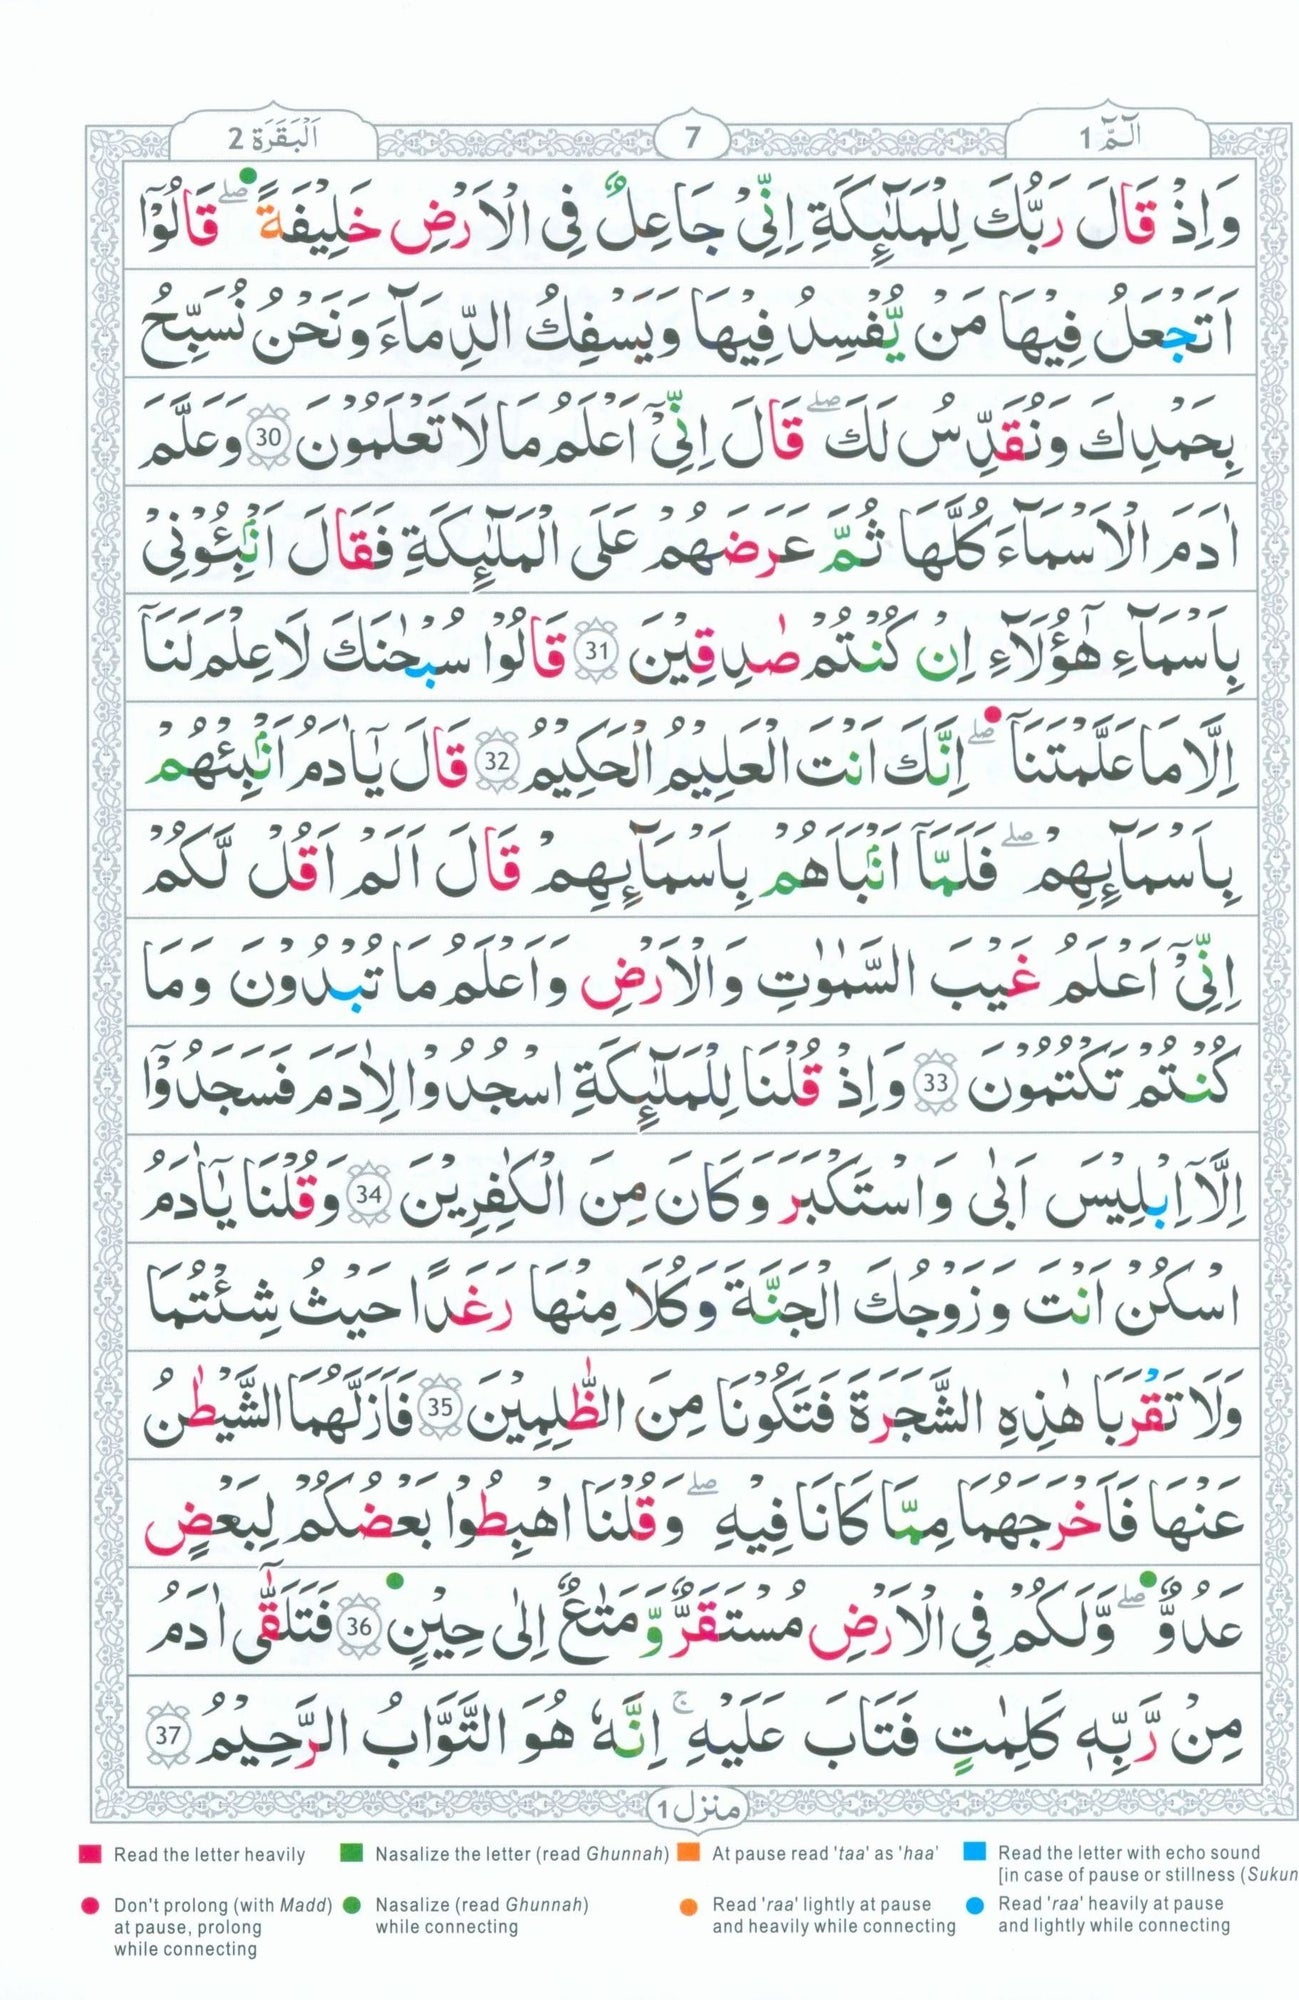 الٓمّٓ 1
7
اَلْبَقَرَة 2
وَاِذْ قَالَ رَبُّكَ لِلْمَلٰٓئِكَةِ اِنِّىْ جَاعِلٌ فِى الْاَرْضِ خَلِيْفَةً ؕ صلے قَالُوْٓا
اَتَجْعَلُ فِيْهَا مَنْ يُّفْسِدُ فِيْهَا وَيَسْفِكُ الدِّمَآءَ وَنَحْنُ نُسَبِّحُ
بِحَمْدِكَ وَنُقَدِّسُ لَكَ صلے قَالَ اِنِّىْٓ اَعْلَمُ مَا لَا تَعْلَمُوْنَ 30 وَعَلَّمَ
اٰدَمَ الْاَسْمَآءَ كُلَّهَا ثُمَّ عَرَضَهُمْ عَلَى الْمَلٰٓئِكَةِ فَقَالَ اَنْۢبِئُوْنِىْ
بِاَسْمَآءِ هٰٓؤُلَآءِ اِنْ كُنْتُمْ صٰدِقِيْنَ 31 قَالُوْا سُبْحٰنَكَ لَا عِلْمَ لَنَآ
اِلَّا مَا عَلَّمْتَنَآ صلے اِنَّكَ اَنْتَ الْعَلِيْمُ الْحَكِيْمُ 32 قَالَ يٰٓاٰدَمُ اَنْۢبِئْهُمْ
بِاَسْمَآئِهِمْ صلے فَلَمَّآ اَنْۢبَاَهُمْ بِاَسْمَآئِهِمْ قَالَ اَلَمْ اَقُلْ لَّكُمْ
اِنِّىْٓ اَعْلَمُ غَيْبَ السَّمٰوٰتِ وَالْاَرْضِ وَاَعْلَمُ مَا تُبْدُوْنَ وَمَا
كُنْتُمْ تَكْتُمُوْنَ 33 وَاِذْ قُلْنَا لِلْمَلٰٓئِكَةِ اسْجُدُوْا لِاٰدَمَ فَسَجَدُوْٓا
اِلَّآ اِبْلِيْسَ اَبٰى وَاسْتَكْبَرَ وَكَانَ مِنَ الْكٰفِرِيْنَ 34 وَقُلْنَا يٰٓاٰدَمُ
اسْكُنْ اَنْتَ وَزَوْجُكَ الْجَنَّةَ وَكُلَا مِنْهَا رَغَدًا حَيْثُ شِئْتُمَا
وَلَا تَقْرَبَا هٰذِهِ الشَّجَرَةَ فَتَكُوْنَا مِنَ الظّٰلِمِيْنَ 35 فَاَزَلَّهُمَا الشَّيْطٰنُ
عَنْهَا فَاَخْرَجَهُمَا مِمَّا كَانَا فِيْهِ صلے وَقُلْنَا اهْبِطُوْا بَعْضُكُمْ لِبَعْضٍ
عَدُوٌّ صلے وَّلَكُمْ فِى الْاَرْضِ مُسْتَقَرٌّ وَّمَتٰعٌ اِلٰى حِيْنٍ 36 فَتَلَقّٰٓى اٰدَمُ
مِنْ رَّبِّهٖ كَلِمٰتٍ فَتَابَ عَلَيْهِ ج اِنَّهٗ هُوَ التَّوَّابُ الرَّحِيْمُ 37
منزل 1
Read the letter heavily
Nasalize the letter (read Ghunnah)
At pause read 'taa' as 'haa'
Read the letter with echo sound
[in case of pause or stillness (Sukun
Don't prolong (with Madd)
at pause, prolong
while connecting
Nasalize (read Ghunnah)
while connecting
Read 'raa' lightly at pause
and heavily while connecting
Read 'raa' heavily at pause
and lightly while connecting